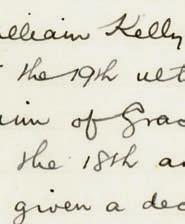 illiam Kelly
the 19th ult
of Grac
the 18th an
given a dec